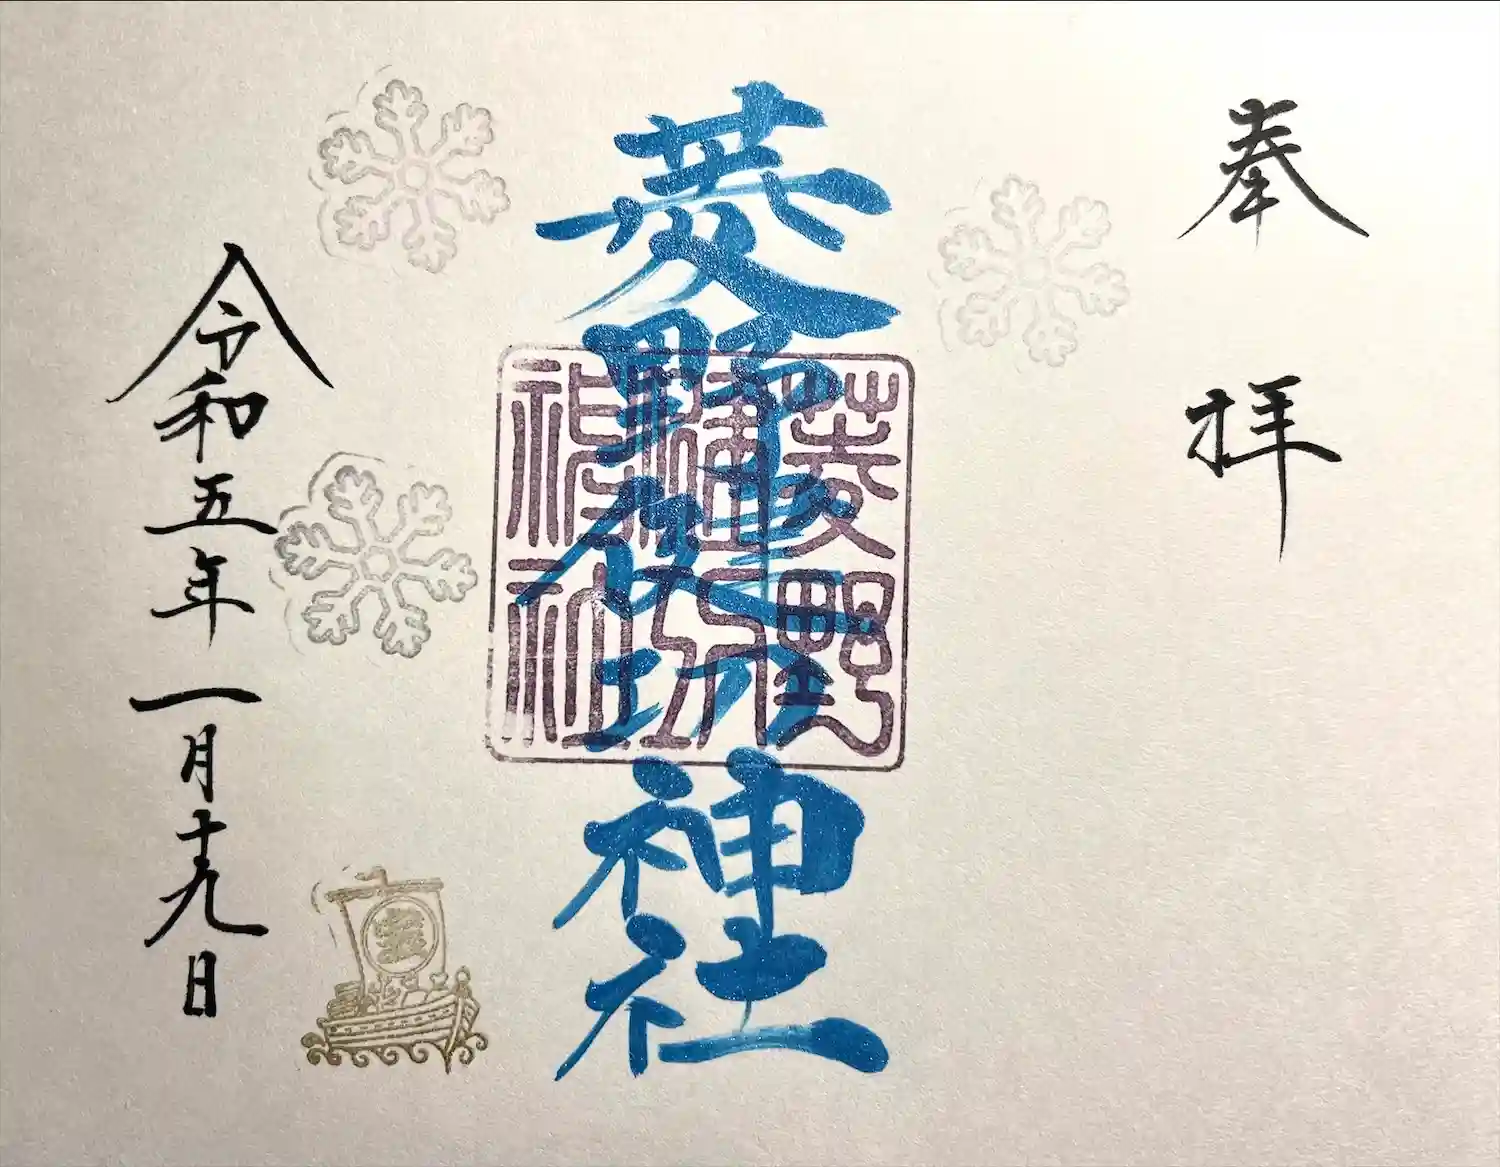 奉拝
菱野健功神社
菱野
健功
神社
令和五年一月十九日